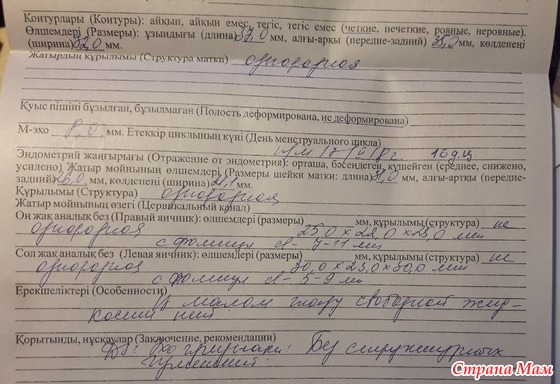 Контурлары (Контуры): айқын, айқын емес, тегіс, тегіс емес (четкие, нечеткие, ровные, неровные).
Өлшемдері (Размеры): ұзындығы (длина) 57,0 мм, алғы-арқы (передне-задний) мм, көлденеңі
(ширина) 52,0 мм.
Жатырдың құрылымы (Структура матки) однородная
Қуыс пішіні бұзылған, бұзылмаған (Полость деформирована, не деформирована)
М-эхо 8,0 мм. Етеккір циклының күні (День менструального цикла)
16 д.ц
Эндометрий жаңғырығы (Отражение от эндометрия): орташа, бәсеңдеген, күшейген (среднее, снижено,
усилено). Жатыр мойнының өлшемдері (Размеры шейки матки: длина) мм, алғы-артқы (передне-
задний) мм, көлденеңі (ширина) мм.
Құрылымы (Структура) однородная
Жатыр мойнының өзегі (Цервикальный канал)
Оң жақ аналық без (Правый яичник): өлшемдері (размеры) мм, құрылымы (структура) не
однородная 25,0 х 22,0 х 25,0 мм
с фоллик d- 7-11 мм
Сол жақ аналық без (Левая яичник): өлшемдері (размеры) мм, құрылымы (структура) не
однородная 30,0 х 23,0 х 30,0 мм
с фоллик d- 5-9 мм
Ерекшеліктері (Особенности)
В малом тазу свободной жид-
кости нет
Қорытынды, нұсқаулар (Заключение, рекомендации)
Без структурных
Страна Мам